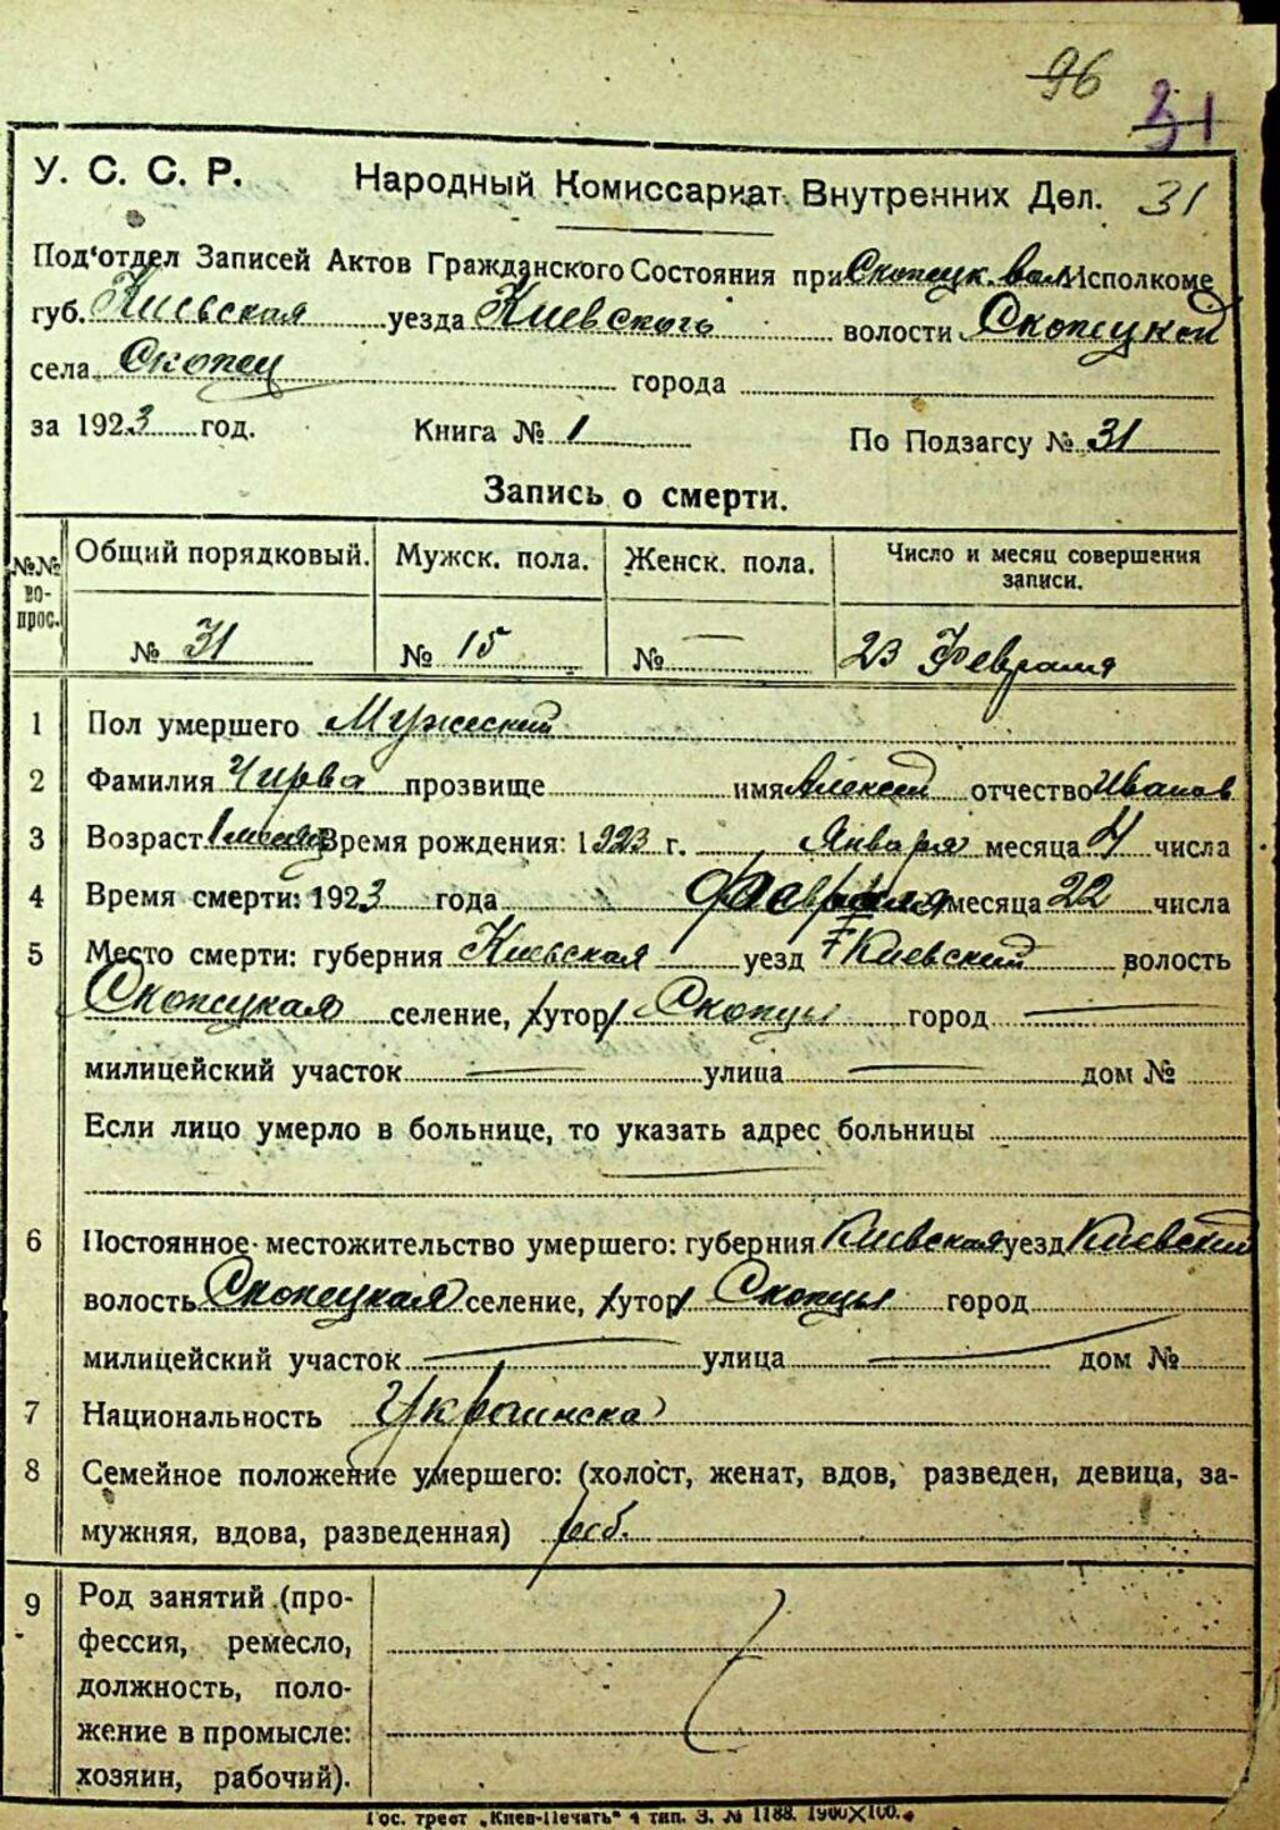 96
31
У. С. С. Р. Народный Комиссариат Внутренних Дел. 31
Под‘отдел Записей Актов Гражданского Состояния при Скопецк. вол. Исполкоме
губ. Киевская уезда Киевского волости Скопецкой
села Скопец города
за 1923 год. Книга № 1 По Подзагсу № 31
Запись о смерти.
№№ во- прос. Общий порядковый. Мужск. пола. Женск. пола. Число и месяц совершения записи.
№ 31 № 15 № — 23 Февраля
1 Пол умершего Мужеский
2 Фамилия Чирва прозвище имя Алексей отчество Иванов
3 Возраст 1 месяц Время рождения: 1923 г. Января месяца 4 числа
4 Время смерти: 1923 года Февраля месяца 22 числа
5 Место смерти: губерния Киевская уезд Киевский волость
Скопецкая селение, хутор Скопцы город —
милицейский участок — улица — дом №
Если лицо умерло в больнице, то указать адрес больницы
6 Постоянное местожительство умершего: губерния Киевская уезд Киевский
волость Скопецкая селение, хутор Скопцы город
милицейский участок — улица — дом №
7 Национальность Украинска
8 Семейное положение умершего: (холост, женат, вдов, разведен, девица, за-
мужняя, вдова, разведенная)
9 Род занятий (про-
фессия, ремесло,
должность, поло-
жение в промысле:
хозяин, рабочий).
Гос. трест „Киев-Печать“ 4 тип. З. № 1188. 1900×100.